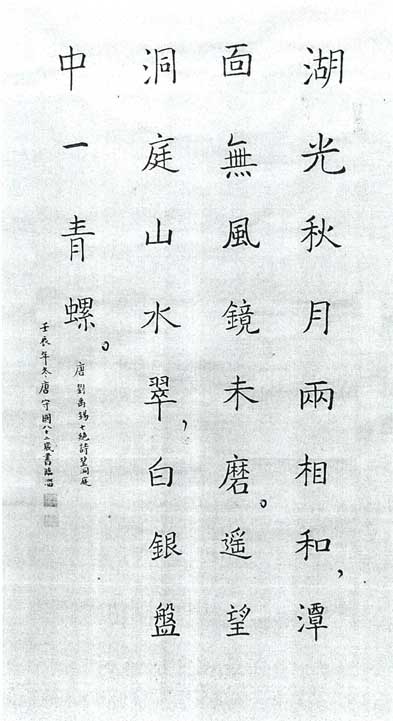 湖光秋月兩相和，潭
面無風鏡未磨。遥望
洞庭山水翠，白銀盤
中一青螺。
唐 劉禹錫七絶詩望洞庭
壬辰年冬唐守 八十二歲書臨淄